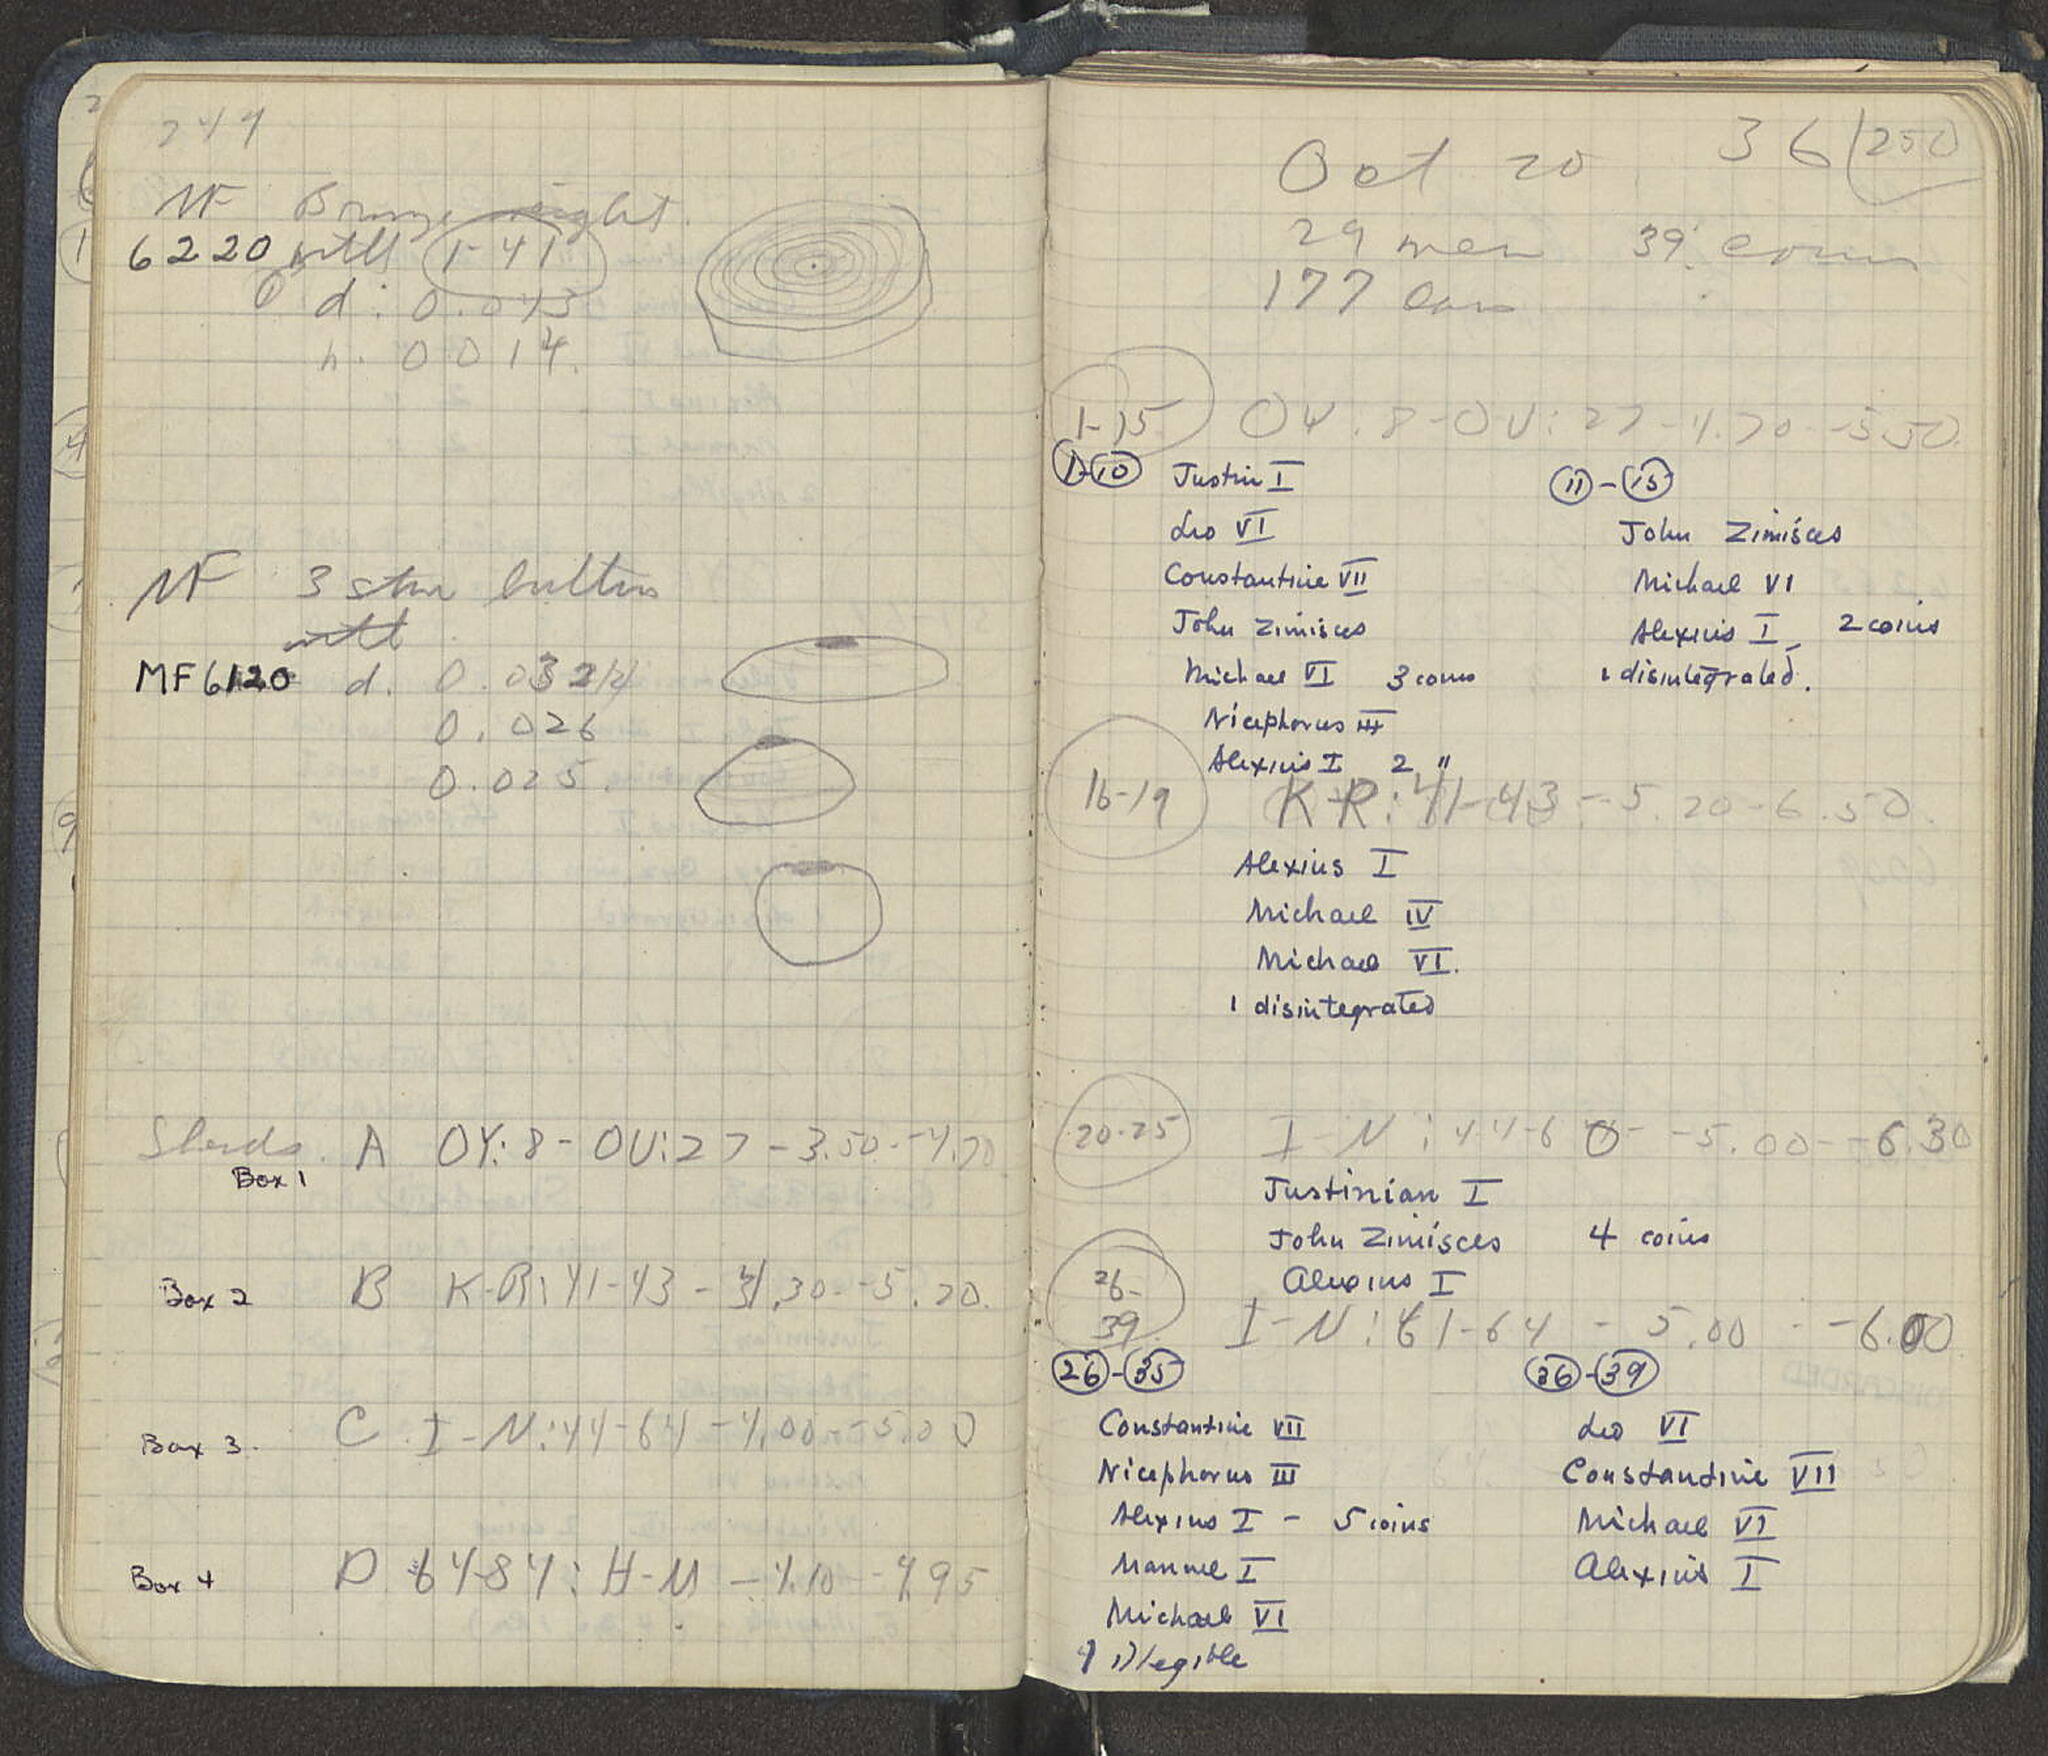 249
MF Bronze weight
6220 with 1-41
d: 0.043
h. 0.014
MF 3 stone buttons
MF 6120 d. 0.032
0.026
0.025
Sherds. A OY:8-OU:27-3.50--4.70
Box 1
Box 2 B K-R:41-43-4.30--5.20
Box 3. C I-N:44-64-4.00--5.00
Box 4 D 64-84:H-M-4.10--4.95
36 250
Oct 20
29 men 39 coins
177 cars
1-15 OY:8-OU:27-4.70--5.50
1-10 Justin I
Leo VI
Constantine VII
John Zimisces
Michael VI 3 coins
Nicephorus III
Alexius I 2 "
11-15
John Zimisces
Michael VI
Alexius I 2 coins
1 disintegrated.
16-19 K-R:41-43-5.20-6.50
Alexius I
Michael IV
Michael VI.
1 disintegrated
20-25 I-N:44-60--5.00--6.30
Justinian I
John Zimisces 4 coins
Alexius I
26-39 I-N:61-64-5.00--6.00
26-35
Constantine VII
Nicephorus III
Alexius I - 5 coins
Manuel I
Michael VI
1 illegible
36-39
Leo VI
Constantine VII
Michael VI
Alexius I